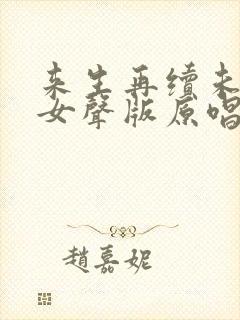 来生再续未
女聲版原唱
趙嘉妮